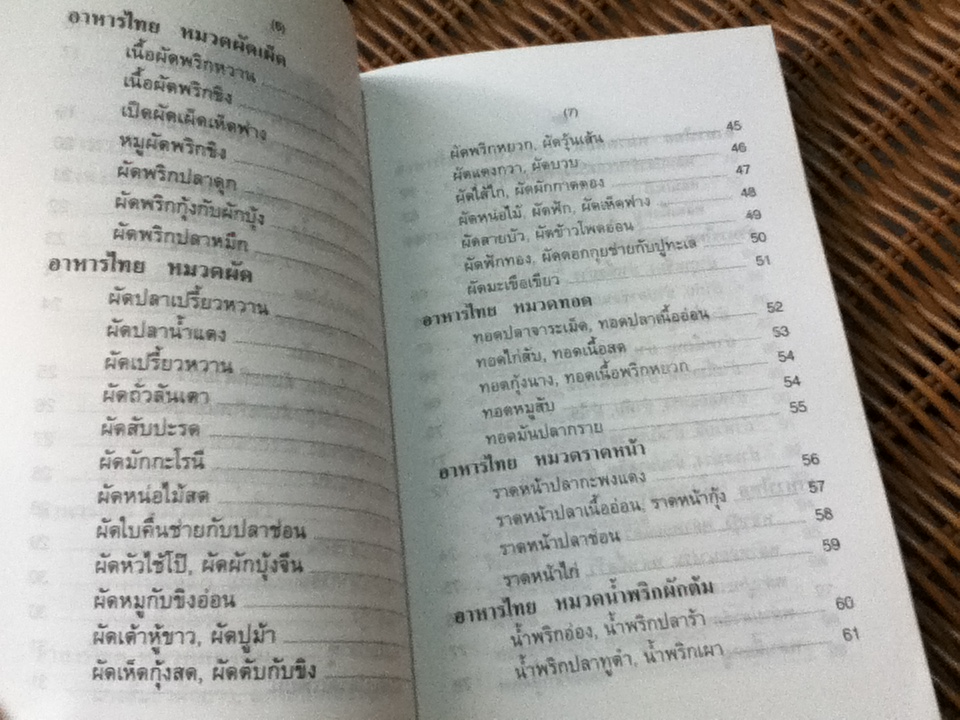 (6)
อาหารไทย หมวดผัดเผ็ด
เนื้อผัดพริกหวาน
เนื้อผัดพริกขิง
เป็ดผัดเผ็ดเห็ดฟาง
หมูผัดพริกขิง
ผัดพริกปลาดุก
ผัดพริกกุ้งกับผักบุ้ง
ผัดพริกปลาหมึก
อาหารไทย หมวดผัด
ผัดปลาเปรี้ยวหวาน
ผัดปลาน้ำแดง
ผัดเปรี้ยวหวาน
ผัดถั่วลันเตา
ผัดสับปะรด
ผัดมักกะโรนี
ผัดหน่อไม้สด
ผัดใบคื่นช่ายกับปลาช่อน
ผัดหัวไช้โป๊, ผัดผักบุ้งจีน
ผัดหมูกับขิงอ่อน
ผัดเต้าหู้ขาว, ผัดปูม้า
ผัดเห็ดกุ้งสด, ผัดตับกับขิง
(7)
ผัดพริกหยวก, ผัดวุ้นเส้น 45
ผัดแตงกวา, ผัดบวบ 46
ผัดไส้ไก่, ผัดผักกาดดอง 47
ผัดหน่อไม้, ผัดฟัก, ผัดเห็ดฟาง 48
ผัดสายบัว, ผัดข้าวโพดอ่อน 49
ผัดฟักทอง, ผัดดอกกุยช่ายกับปูทะเล 50
ผัดมะเขือเขียว 51
อาหารไทย หมวดทอด
ทอดปลาจาระเม็ด, ทอดปลาเนื้ออ่อน 52
ทอดไก่สับ, ทอดเนื้อสด 53
ทอดกุ้งนาง, ทอดเนื้อพริกหยวก 54
ทอดหมูสับ 54
ทอดมันปลากราย 55
อาหารไทย หมวดราดหน้า
ราดหน้าปลากะพงแดง 56
ราดหน้าปลาเนื้ออ่อน, ราดหน้ากุ้ง 57
ราดหน้าปลาช่อน 58
ราดหน้าไก่ 59
อาหารไทย หมวดน้ำพริกผักต้ม
น้ำพริกอ่อง, น้ำพริกปลาร้า 60
น้ำพริกปลาทูตำ, น้ำพริกเผา 61